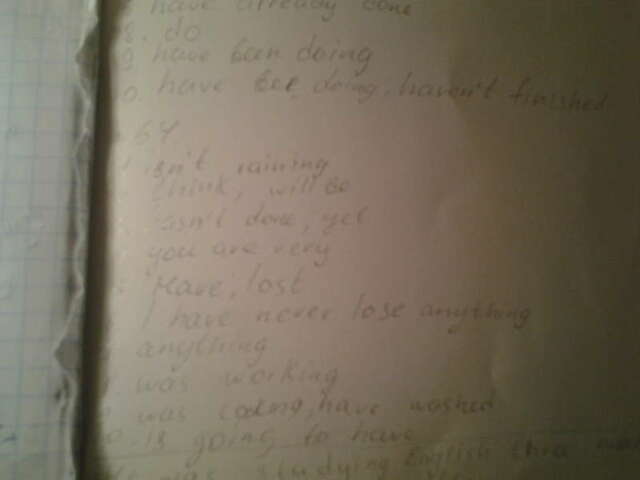 have already done
8. do
9. have been doing
0. have bee, doing, haven't finished
64
isn't raining
think, will be
hasn't done, yet
you are very
Have, lost
I have never lose anything
anything
was working
was , have washed
0. is going to have
was studying English